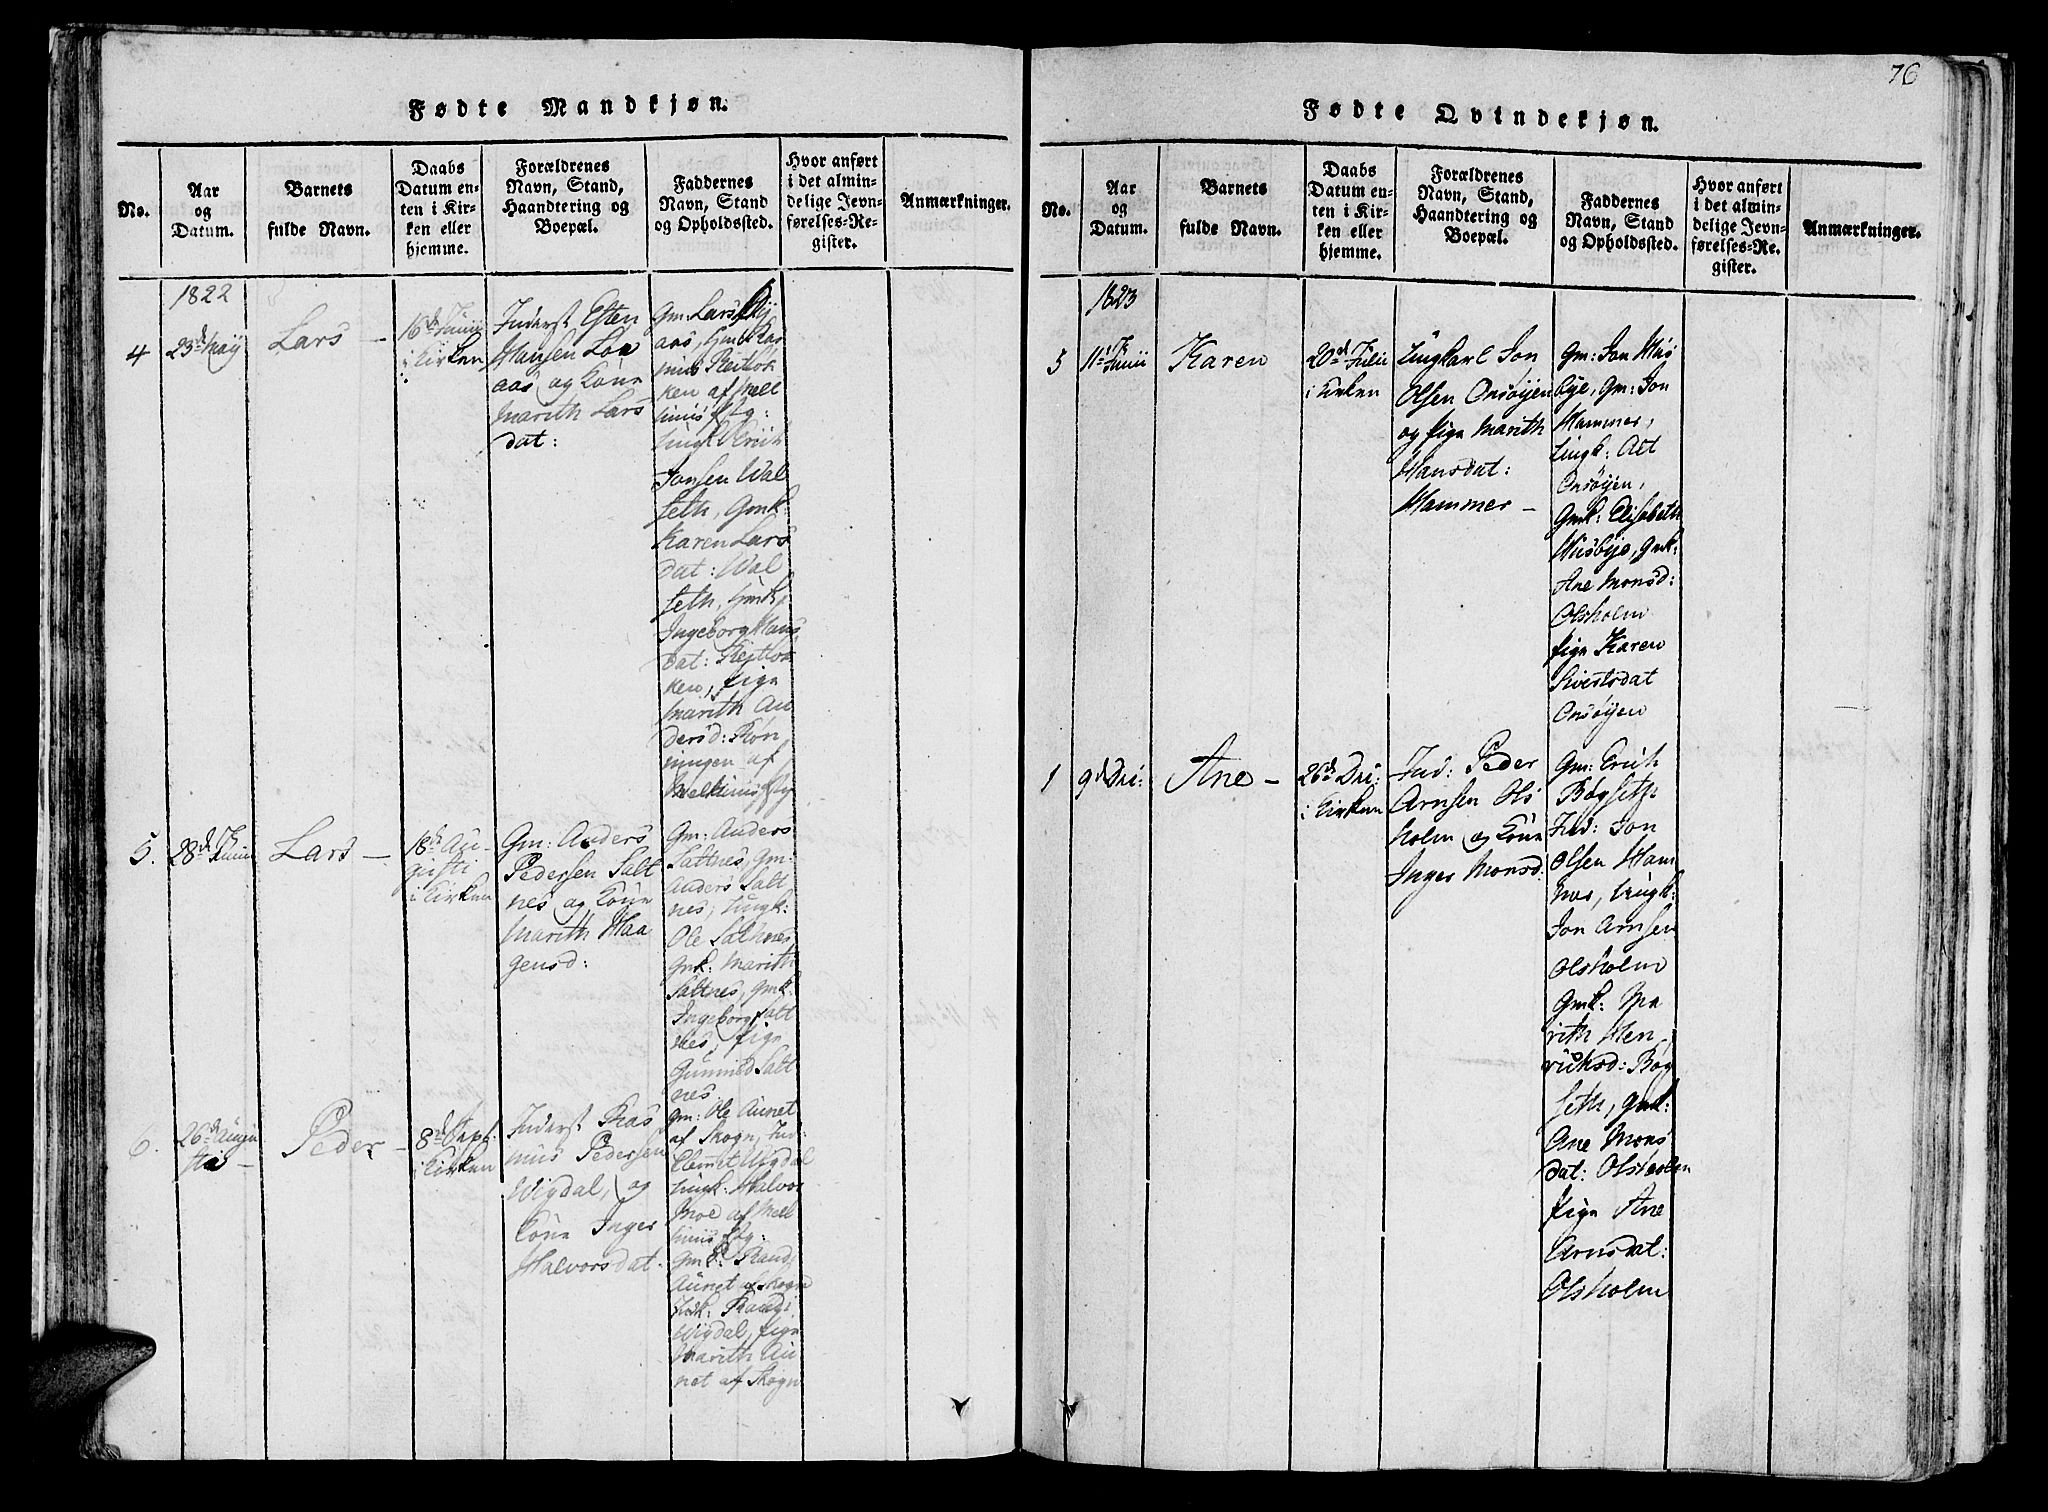 76
Fødte Mandkjøn.
No.
Aar
og
Datum.
Barnets
fulde Navn.
Daabs
Datum en-
ten i Kir-
ken eller
hjemme.
Forældrenes
Navn, Stand,
Haandtering og
Boepæl.
Faddernes
Navn, Stand
og Opholdssted.
Hvor anført
i det almin-
delige Jevn-
førelses-Re-
gister.
Anmærkninger.
1822
4
23de May
Lars –
16de Junii
i Kirken
Inderst Esten
Hansen Loe
aas og Kone
Marith Lars
dat:
Gm: Lars
aas, Gm: Ras
mus Reitlok
ken af Mell
huus Stg:
Ungk Erich
Jonsen Wal
seth, Gmk:
Karen Lars
dat: Wal
seth, Gmk:
Ingeborg Hans
dat: Reitlok
ken, Pige
Marith An
dersd: Røn
ningen af
Mellhuus Stg
5.
28de Junii
Lars –
18de Au-
gusti
i Kirken
Gm: Anders
Pedersen Salt
nes og Kone
Marith Haa
gensd:
Gm: Anders
Saltnes, Gm:
Anders Salt
nes, Ungk:
Ole Saltnes,
Gmk: Marith
Saltnes, Gmk:
Ingeborg Salt
nes, Pige
Gunnild Salt
nes
6.
26de Augu
sti –
Peder –
8de Sept:
i Kirken
Inderst Ras
mus Pedersen
Wigdal, og
Kone Inger
Halvorsdat:
Gm: Ole Aunet
af Skogn, Ind:
Clemet Wigdal
Ungk: Halvor
Moe af Mell
huus Stg:
Gmk: Rand:
Aunet af Skogn
Indk: Randi
Wigdal, Pige
Marith Au
net af Skogn
Fødte Qvindekjøn.
No.
Aar
og
Datum.
Barnets
fulde Navn.
Daabs
Datum en-
ten i Kir-
ken eller
hjemme.
Forældrenes
Navn, Stand,
Haandtering og
Boepæl.
Faddernes
Navn, Stand
og Opholdssted.
Hvor anført
i det almin-
delige Jevn-
førelses-Re-
gister.
Anmærkninger.
1823
5
11te Junii
Karen
20de Julii
i Kirken
Ungkarl Jon
Olsen Onsøijen
og Pige Marith
Hansdat:
Hammer –
Gm: Jon Hus
bye, Gm: Jon
Hammer,
Ungk: Att
Onsøijen,
Gmk: Elisabeth
Husbye, Gmk:
Ane Monsd:
Olsholm
Pige Karen
Sivertsdat
Onsøijen
1
9de Dec:
Ane –
26de Dec:
i Kirken
Ind: Peder
Arnsen Ols
holm og Kone
Inger Monsd:
Gm: Erich
Bøgseth
Ind: Jon
Olsen Ham
mer, Ungk:
Jon Arnsen
Olsholm
Gmk: Ma
rith Hen
richsd: Bøg
seth, Gmk:
Ane Mons
dat: Olsholm
Pige Ane
Arnsdat:
Olsholm